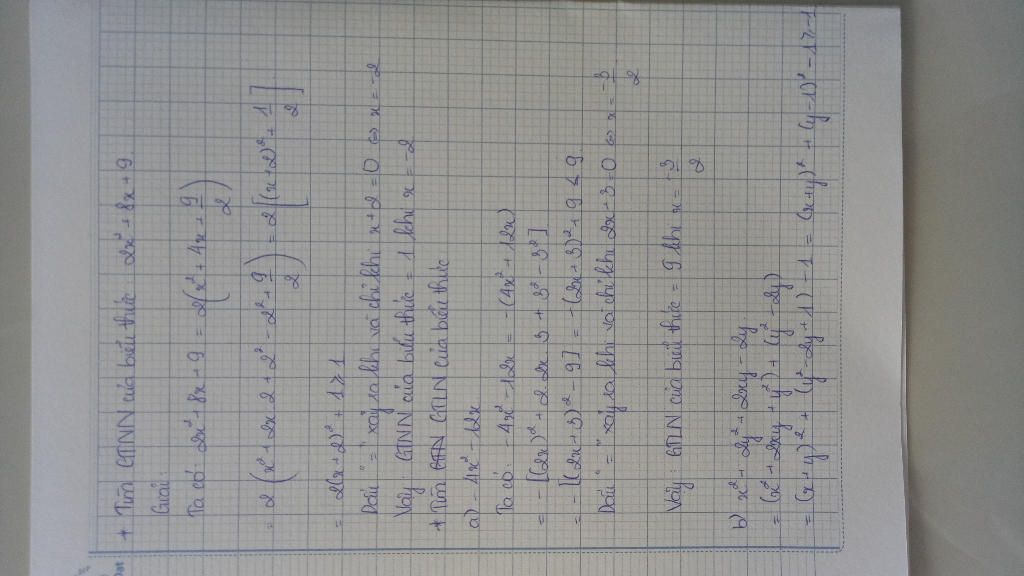 * Tìm GTNN của biểu thức: 2x² + 8x + 9.
Giải:
Ta có: 2x² + 8x + 9 = 2(x² + 4x + 9/2)
= 2(x² + 2x.2 + 2² - 2² + 9/2) = 2[(x+2)² + 1/2]
= 2(x+2)² + 1 ⩾ 1
Dấu "=" xảy ra khi và chỉ khi x+2 = 0 ⇔ x = -2
Vậy: GTNN của biểu thức = 1 khi x = -2
* Tìm GTLN của biểu thức
a) - 4x² - 12x
Ta có: - 4x² - 12x = -(4x² + 12x)
= - [(2x)² + 2.2x.3 + 3² - 3²]
= - [(2x+3)² - 9] = - (2x+3)² + 9 ⩽ 9
Dấu "=" xảy ra khi và chỉ khi 2x+3 = 0 ⇔ x = -3/2
Vậy: GTLN của biểu thức = 9 khi x = -3/2
b) x² + 2y² + 2xy - 2y.
= (x² + 2xy + y²) + (y² - 2y)
= (x+y)² + (y² - 2y + 1) - 1 = (x+y)² + (y-1)² - 1 ⩾ -1